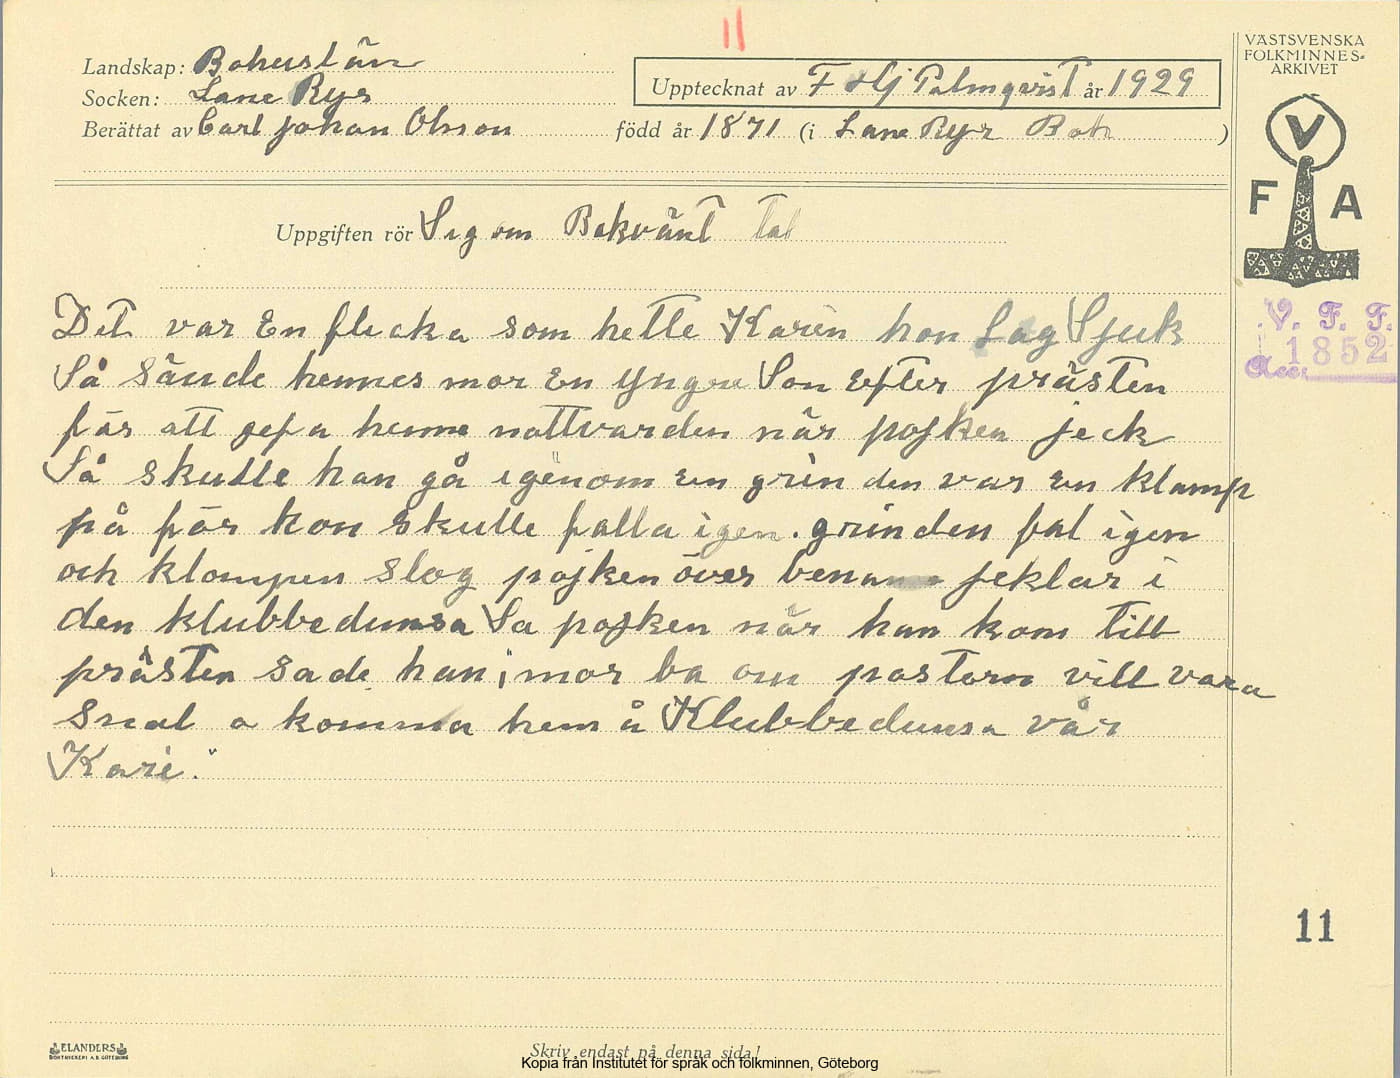 11
VÄSTSVENSKA
FOLKMINNES-
ARKIVET
Landskap: Bohuslän
Socken: Lane Ryr
Upptecknat av F Hj Palmqvist år 1929
Berättat av Carl Johan Olsson född år 1871 (i Lane Ryr Boh )
V
F A
Uppgiften rör Sägen Bakvänt tal
V. F. F.
Acc. 1852
Det var En flicka som hette Karin hon Låg Sjuk
Så sände hennes mor En yngre Son Efter prästen
för att gefa henne nattvarden när pojken jeck
Så skulle han gå igenom en grin den var en klamp
på för hon skulle falla igen. grinden fal igen
och klampen slog pojken över benan jeklar i
den klubbedunsa Sa pojken när han kom till
prästen sade han; "mor ba om pastorn vill vara
snal o komma hem å Klubbedunsa vår
Kari."
11
ELANDERS
BOKTRYCKERI A.B. GÖTEBORG
Skriv endast på denna sida!
Kopia från Institutet för språk och folkminnen, Göteborg